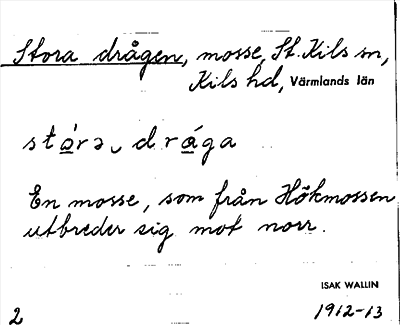 Stora drågen, mosse, St. Kils sn,
Kils hd, Värmlands län
stá̱rə‿drá̱ga
En mosse, som från Hökmossen
utbreder sig mot norr.
ISAK WALLIN
2 1912-13